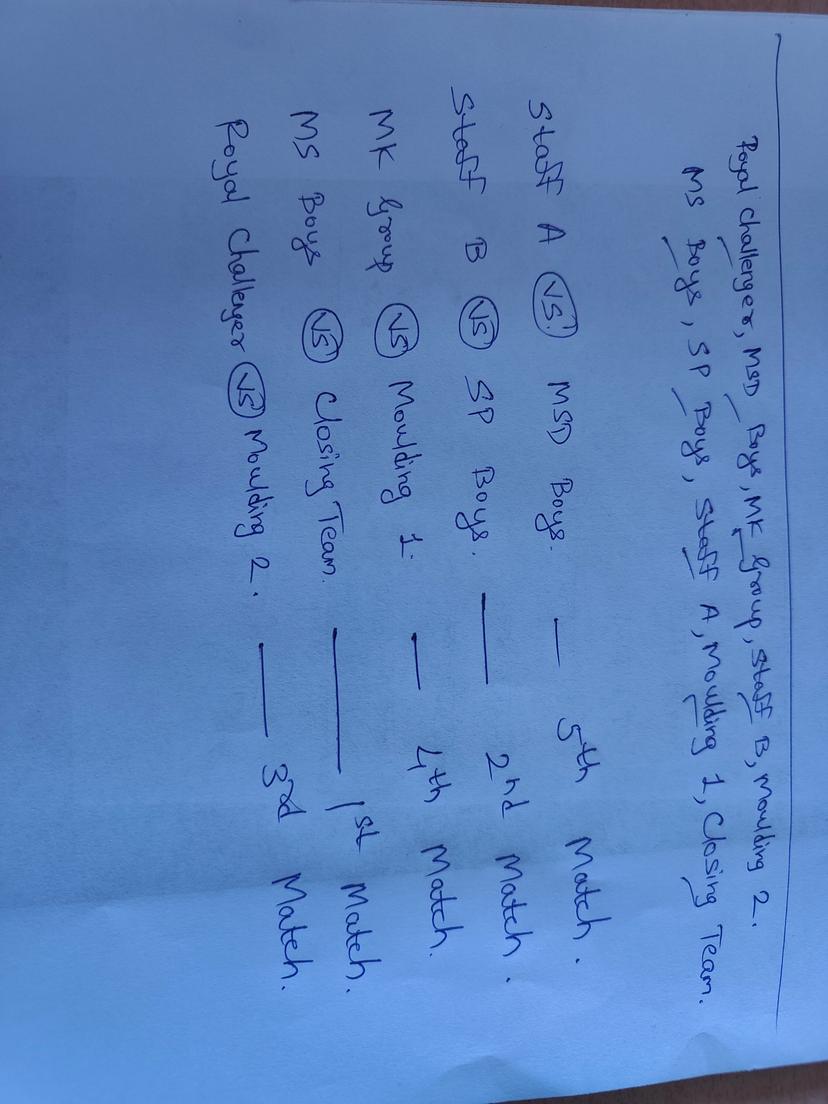 Royal Challenger, MSD Boys, MK Group, Staff B, Moulding 2.
MS Boys, SP Boys, Staff A, Moulding 1, Closing Team.
Staff A VS. MSD Boys. — 5th Match.
Staff B VS SP Boys. — 2nd Match.
MK Group VS Moulding 1. — 4th Match.
MS Boys VS Closing Team. — 1st Match.
Royal Challenger VS Moulding 2. — 3rd Match.